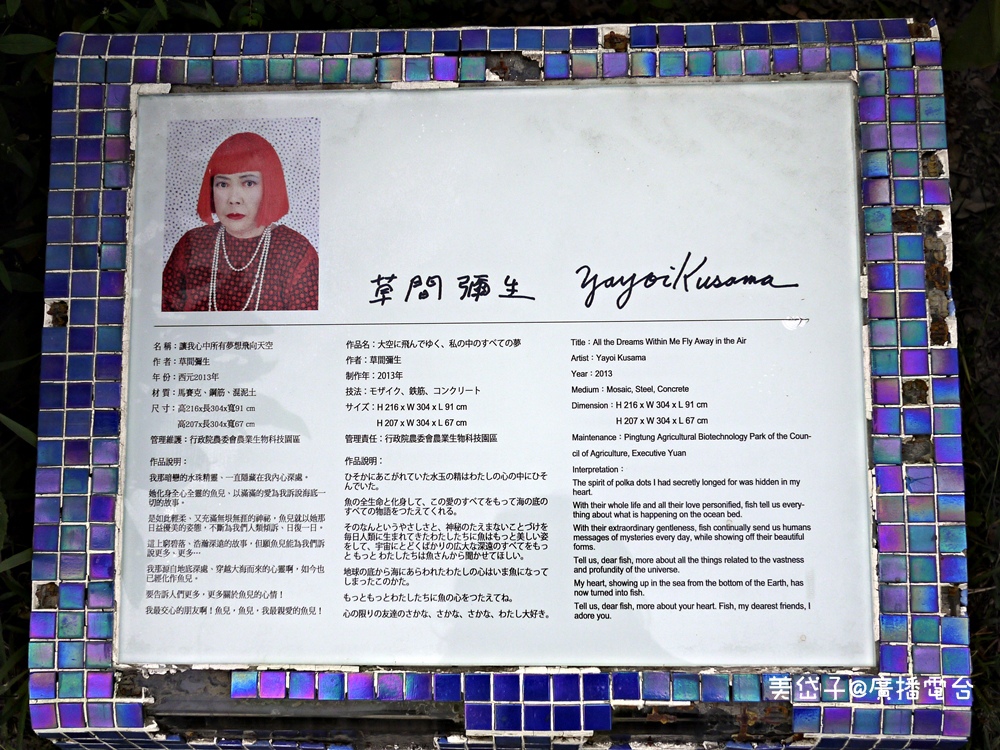 草間彌生
Yayoi Kusama
名 稱：讓我心中所有夢想飛向天空
作 者：草間彌生
年 份：西元2013年
材 質：馬賽克、鋼筋、混泥土
尺 寸：高216x長304x寬91 cm
高207x長304x寬67 cm
管理維護：行政院農委會農業生物科技園區
作品說明：
我那暗戀的水珠精靈、一直隱藏在我內心深處。
她化身全心全靈的魚兒、以滿滿的愛為我訴說海底一
切的故事。
是如此輕柔、又充滿無垠無涯的神祕，魚兒就以她那
日益優美的姿態，不斷為我們人類傾訴、日復一日。
這上窮碧落、浩瀚深遠的故事，但願魚兒能為我們訴
說更多、更多…
我那源自地底深處、穿越大海而來的心靈啊，如今也
已經化作魚兒。
要告訴人們更多，更多關於魚兒的心情！
我最交心的朋友啊！魚兒，魚兒，我最親愛的魚兒！
作品名：大空に飛んでゆく、私の中のすべての夢
作者：草間彌生
制作年：2013年
技法：モザイク、鉄筋、コンクリート
サイズ：H 216 x W 304 x L 91 cm
H 207 x W 304 x L 67 cm
管理責任：行政院農委會農業生物科技園區
作品説明：
ひそかにあこがれていた水玉の精はわたしの心の中にひそ
んでいた。
魚の全生命と化身して、この愛のすべてをもって海の底の
すべての物語をつたえてくれる。
そのなんというやさしさと、神秘のたえまないことづけを
毎日人類に生まれてきたわたしたちに魚はもっと美しい姿
をして、宇宙にとどくばかりの広大な深遠のすべてをもっ
と もっと わたしたちは魚さんから聞かせてほしい。
地球の底から海にあらわれたわたしの心はいま魚になって
しまったこのかた。
もっともっとわたしたちに魚の心をつたえてね。
心の限りの友達のさかな、さかな、さかな、わたし大好き。
Title：All the Dreams Within Me Fly Away in the Air
Artist：Yayoi Kusama
Year：2013
Medium：Mosaic, Steel, Concrete
Dimension：H 216 x W 304 x L 91 cm
H 207 x W 304 x L 67 cm
Maintenance：Pingtung Agricultural Biotechnology Park of the Coun-
cil of Agriculture, Executive Yuan
Interpretation：
The spirit of polka dots I had secretly longed for was hidden in my
heart.
With their whole life and all their love personified, fish tell us every-
thing about what is happening on the ocean bed.
With their extraordinary gentleness, fish continually send us humans
messages of mysteries every day, while showing off their beautiful
forms.
Tell us, dear fish, more about all the things related to the vastness
and profundity of the universe.
My heart, showing up in the sea from the bottom of the Earth, has
now turned into fish.
Tell us, dear fish, more about your heart. Fish, my dearest friends, I
adore you.
美岱子@廣播電台